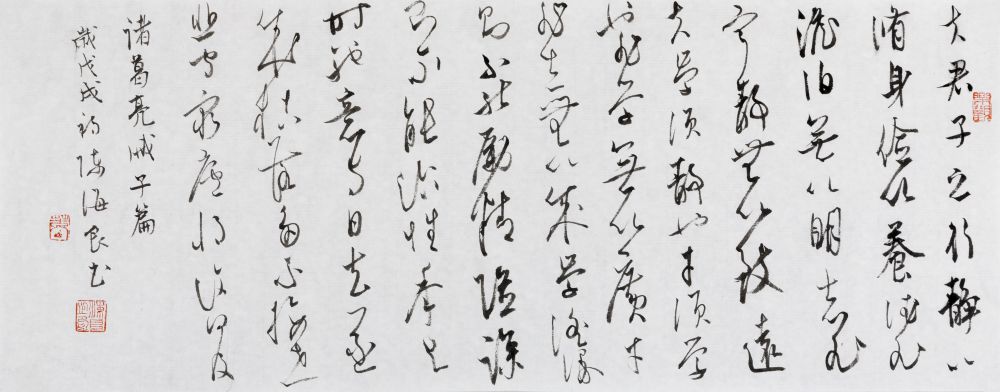 夫君子之行静以
脩身儉以養德非
澹泊无以明志非
寧静無以致遠
夫學須静也才須學
也非學無以廣才
非志無以成學漫
則不能勵精險躁
則不能治性年与
時馳意与日去遂
成枯落多不接世
悲守窮廬将復何及
諸葛亮诫子篇
歲戊戌陈海良书